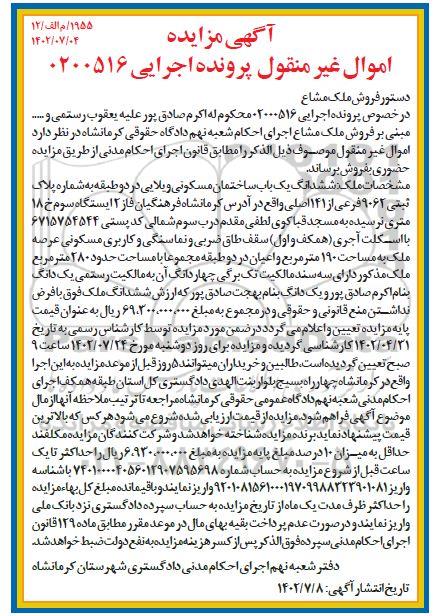 ۱۹۵۵/م الف/۱۲
۱۴۰۲/۰۷/۰۴
آگهی مزایده
اموال غیر منقول پرونده اجرایی ۰۲۰۰۵۱۶
دستور فروش ملک مشاع
درخصوص پرونده اجرایی ۰۲۰۰۰۵۱۶ محکوم له اکرم صادق پور علیه یعقوب رستمی و .....
مبنی بر فروش ملک مشاع اجرای احکام شعبه نهم دادگاه حقوقی کرمانشاه در نظر دارد
اموال غیر منقول موصوف ذیل الذکر را مطابق قانون اجرای احکام مدنی از طریق مزایده
حضوری بفروش برساند.
مشخصات ملک: ششدانگ یک باب ساختمان مسکونی ویلایی در دو طبقه به شماره پلاک
ثبتی ۹۰۶۲ فرعی از ۱۴۱ اصلی واقع در آدرس کرمانشاه فرهنگیان فاز ۲ ایستگاه سوم خ ۱۸
متری نرسیده به مسجد قباکوی لطفی مقدم درب سوم شمالی کد پستی ۶۷۱۵۷۵۴۵۴۴
با اسکلت آجری (همکف و اول) سقف طاق ضربی و نما سنگی و کاربری مسکونی عرصه
ملک به مساحت ۱۹۰ مترمربع و اعیان در دو طبقه مجموعا با مساحت حدود ۲۸۰ مترمربع
ملک مذکور دارای سه سند مالکیت تک برگی چهار دانگ آن به مالکیت رستمی یک دانگ
بنام اکرم صادق پور و یک دانگ بنام بهجت صادق پور که ارزش ششدانگ ملک فوق با فرض
نداشتن منع قانونی و حقوقی و در مجموع به مبلغ ۶۹،۳۰۰،۰۰۰،۰۰۰ ریال به عنوان قیمت
پایه مزایده تعیین و اعلام می گردد در ضمن مورد مزایده توسط کارشناس رسمی به تاریخ
۱۴۰۲/۰۴/۳۱ کارشناسی گردیده و مزایده برای روز دوشنبه مورخ ۱۴۰۲/۰۷/۲۴ ساعت ۹
صبح تعیین گردیده است. طالبین و خریداران میتوانند ۵ روز قبل از موعد مزایده به این اجرا
واقع در کرمانشاه چهارراه بسیج بلوار بنت الهدی دادگستری کل استان طبقه همکف اجرای
احکام مدنی شعبه نهم دادگاه عمومی حقوقی کرمانشاه مراجعه تا ترتیب ملاحظه آنها از مال
موضوع آگهی فراهم شود. مزایده از قیمت ارزیابی شده شروع می شود هر کس که بالاترین
قیمت پیشنهاد نماید برنده مزایده شناخته خواهد شد و شرکت کنندگان مزایده مکلفند
حداقل به میزان ۱۰ درصد مبلغ پایه مزایده به مبلغ ۶،۹۳۰،۰۰۰،۰۰۰ ریال را حداکثر تا یک
ساعت قبل از شروع مزایده به حساب شماره ۷۴۰۱۰۰۰۰۴۰۵۶۰۱۲۹۰۷۵۹۵۶۹۸ با شناسه
واریز ۹۲۰۱۰۸۱۵۶۱۰۰۰۱۹۷۰۹۹۸۸۳۲۳۹۰۱۰۸۱ واریز نمایند و باقیمانده مبلغ کل بهاء مزایده
را حداکثر ظرف مدت یک ماه از تاریخ مزایده به حساب سپرده دادگستری نزد بانک ملی
واریز نمایند و در صورت عدم پرداخت بقیه بهای مال در موعد مقرر مطابق ماده ۱۲۹ قانون
اجرای احکام مدنی سپرده فوق الذکر پس از کسر هزینه مزایده به نفع دولت ضبط خواهد شد.
دفتر شعبه نهم اجرای احکام مدنی دادگستری شهرستان کرمانشاه
تاریخ انتشار آگهی: ۱۴۰۲/۷/۸